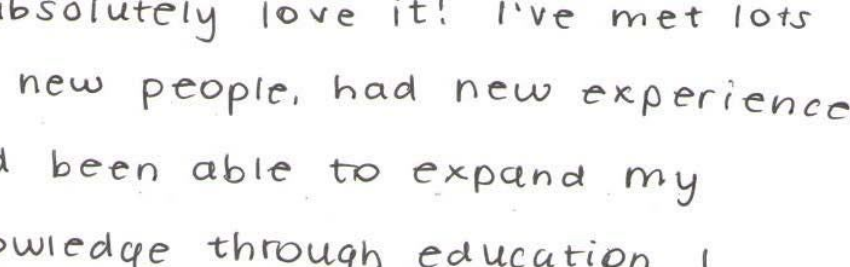 absolutely love it! I've met lots
new people, had new experience
been able to expand my
owledge through education I